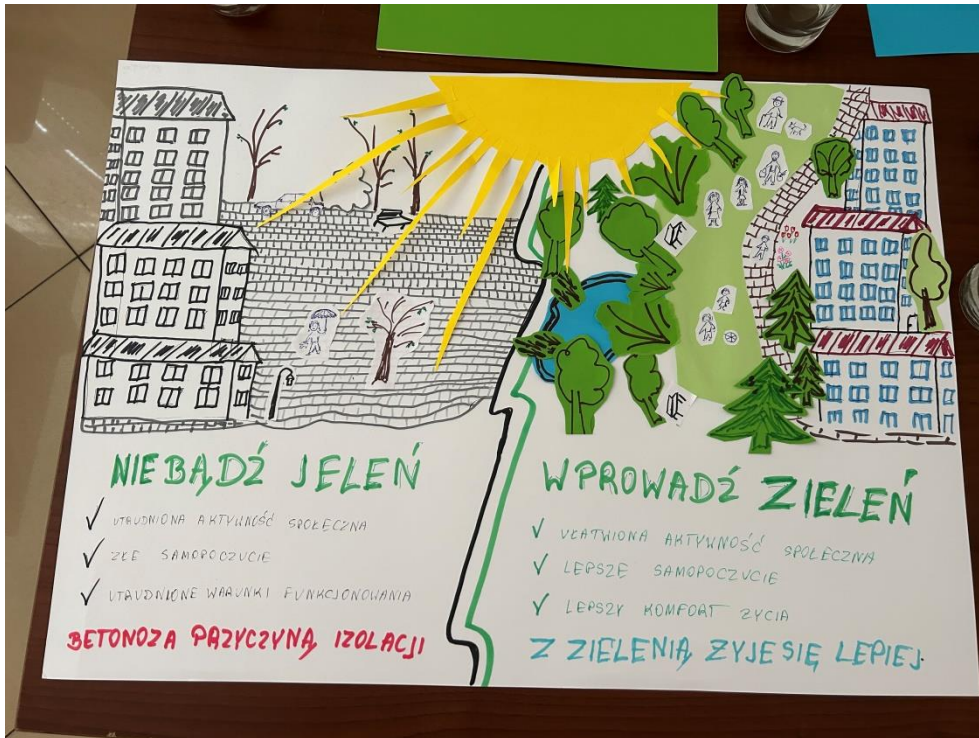 NIE BĄDŹ JELEŃ
UTRUDNIONA AKTYWNOŚĆ SPOŁĘCZNA
ZŁE SAMOPOCZUCIE
UTRUDNIONE WARUNKI FUNKCJONOWANIA
BETONOZA PRZYCZYNĄ IZOLACJI
WPROWADŹ ZIELEŃ
UŁATWIONA AKTYWNOŚĆ SPOŁECZNA
LEPSZE SAMOPOCZUCIE
LEPSZY KOMFORT ŻYCIA
Z ZIELENIĄ ŻYJE SIĘ LEPIEJ.